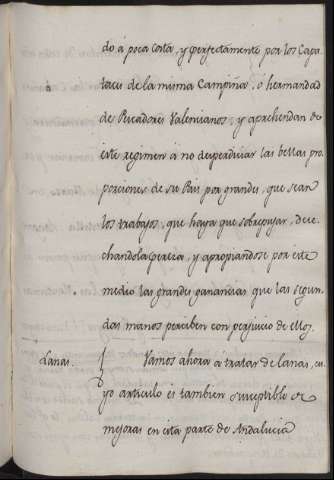 do á poca costa, y perfectamente por los Capa
taces de la misma Campiña, o hermandad
de Pescadores Valencianos; y aprehendan de
este regimen á no desperdiciar las bellas pro
porciones de su Pais por grandes, que sean
los trabajos, que haya que sobrepujar, dese
chandola pereza, y apropiandose por este
medio las grandes ganancias que las segun
das manos perciben con perjuicio de ellos.
Lanas. Vamos ahora á tratar de lanas, cu
yo articulo es tambien susceptible de
mejoras en esta parte de Andalucia